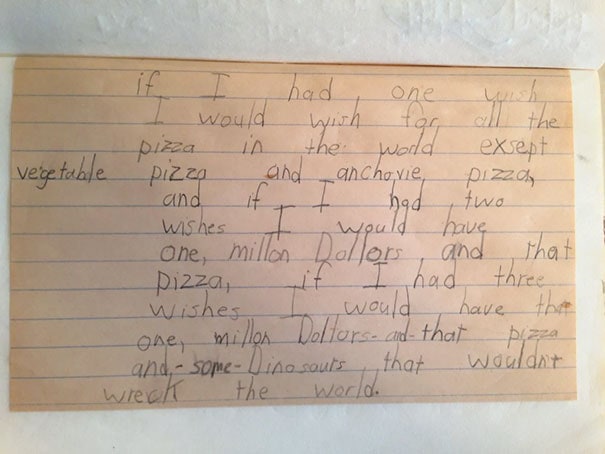 if I had one wish
I would wish for all the
pizza in the world exsept
vegetable pizza and anchovie pizza,
and if I had two
wishes I would have
one, millon Dollors and that
pizza, if I had three
wishes I would have that
one, millon Dollors-and-that pizza
and,-some-Dinosaurs that wouldnt
wreck the world.